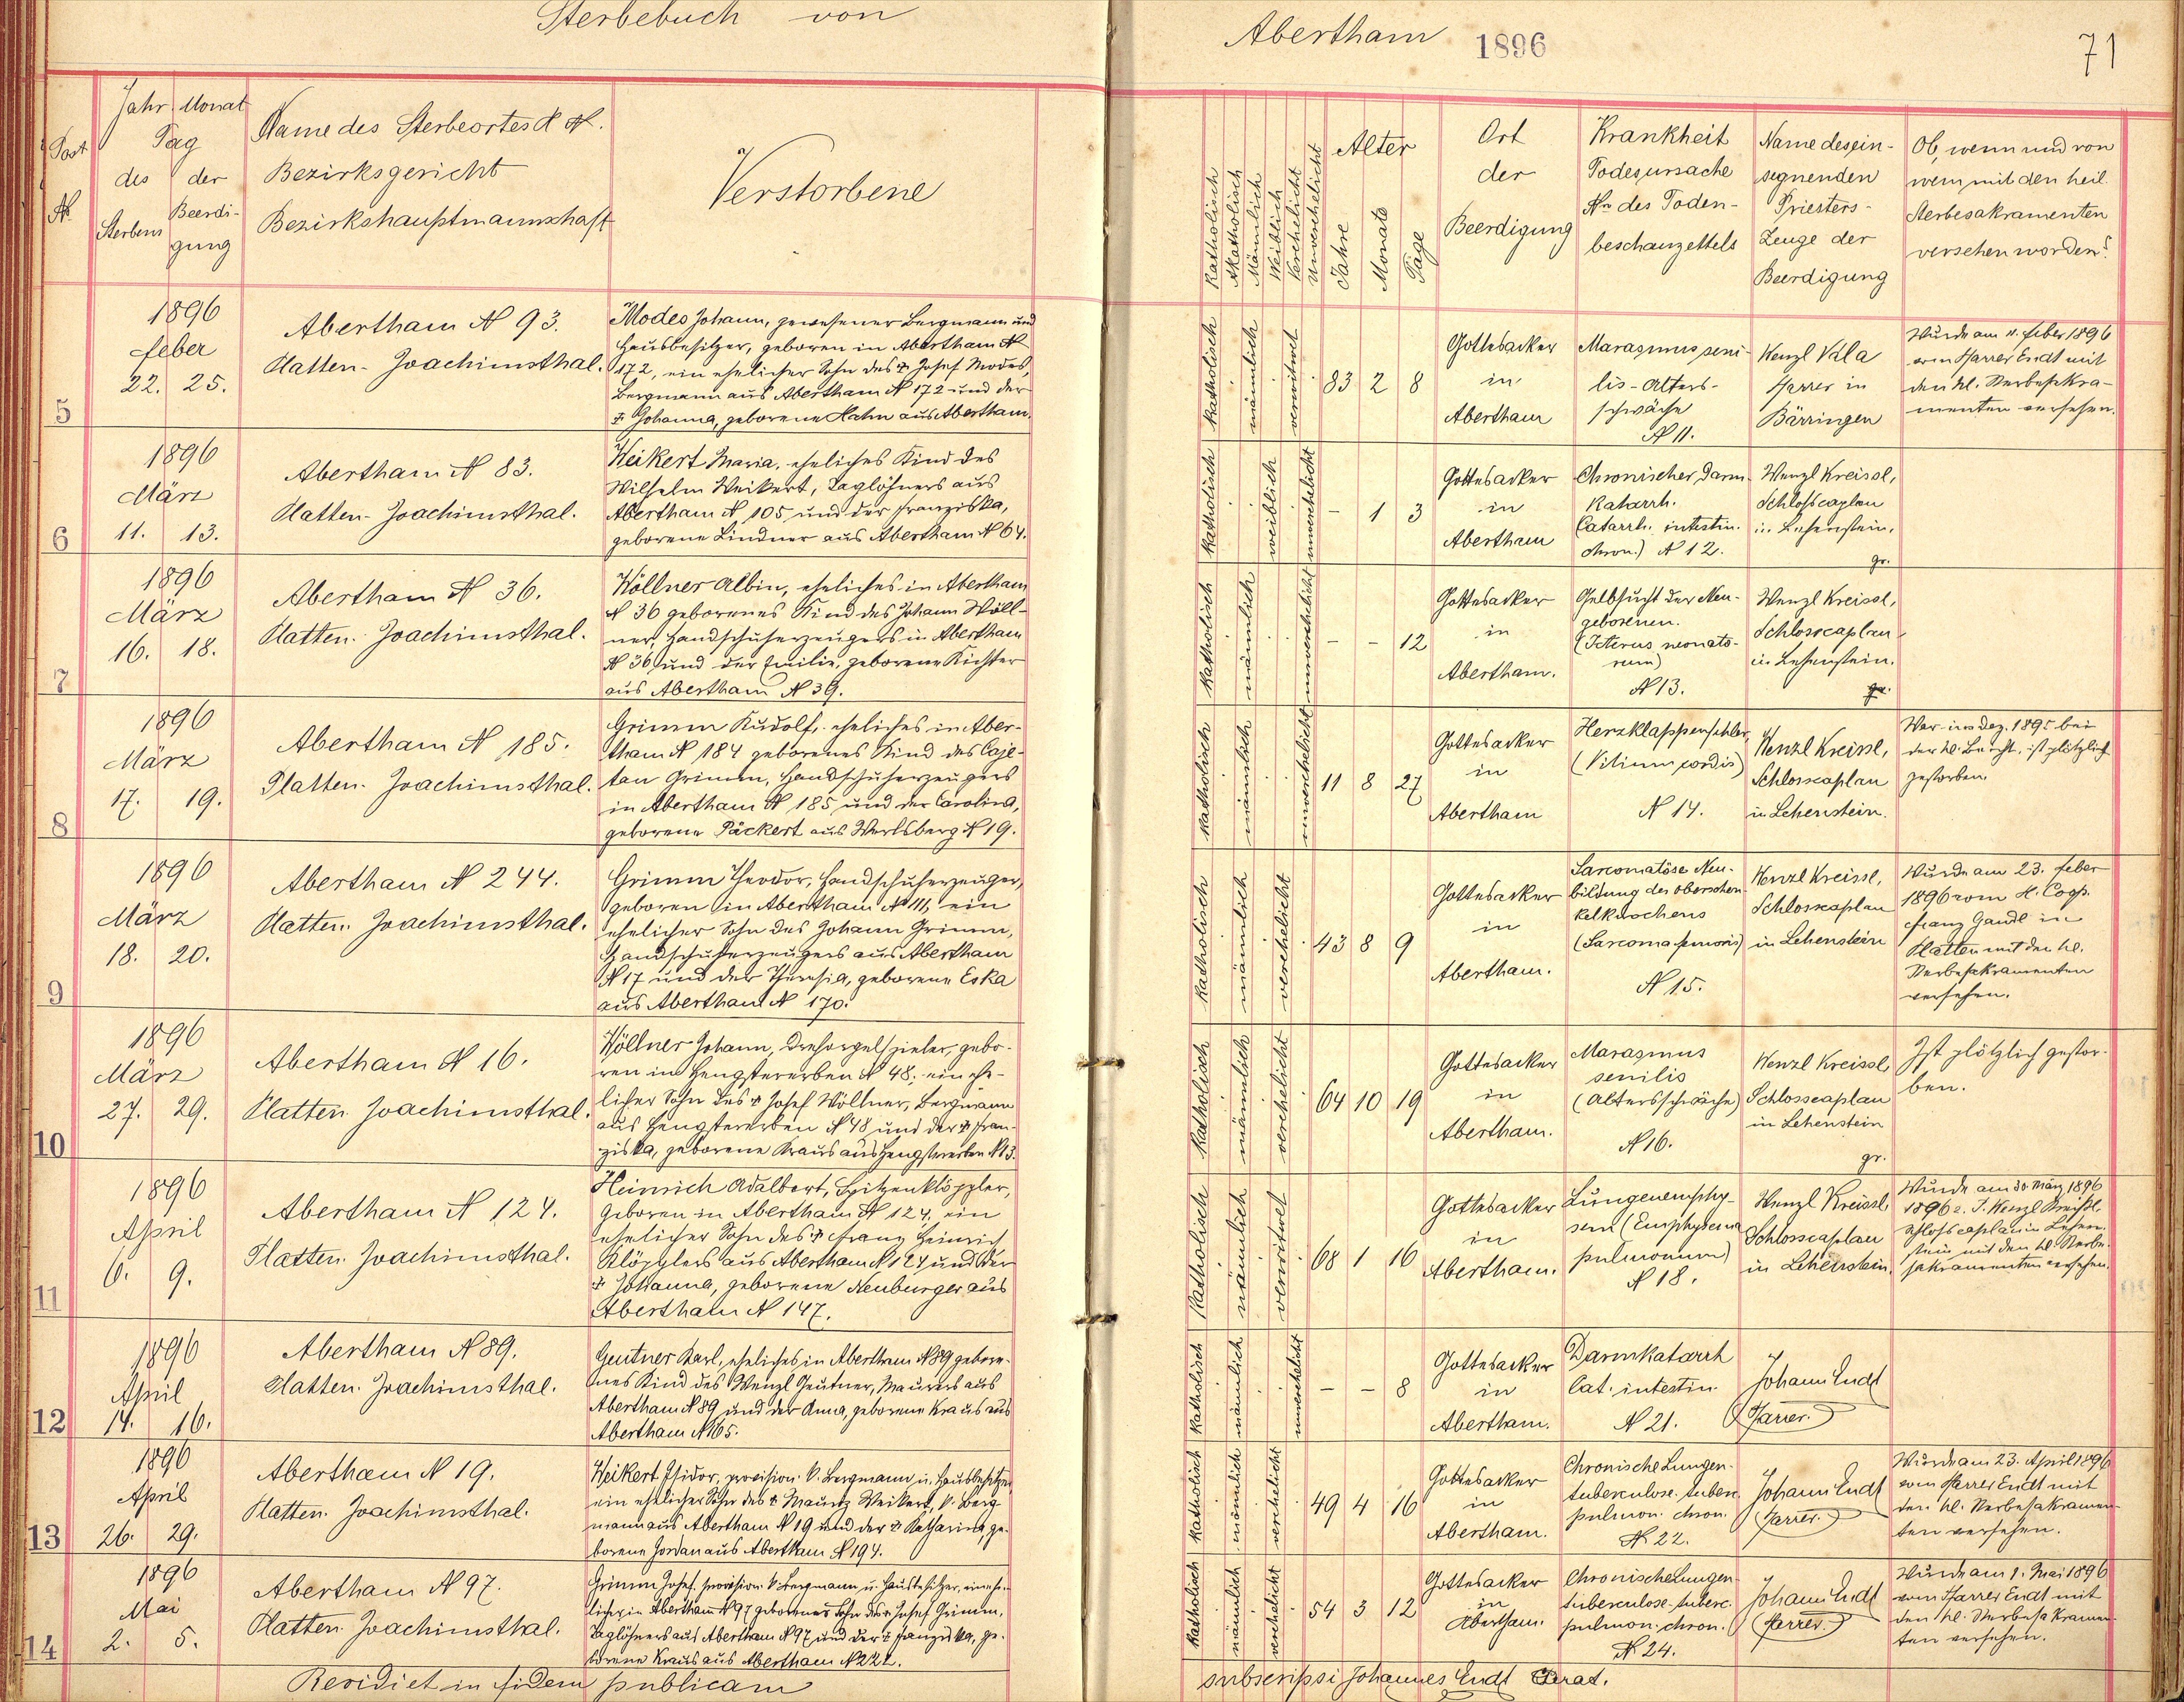 Sterbebuch von
Abertham 1896
71
Post
N.
Jahr Monat
Tag
des der
Sterbens Beerdi-
gung
Name des Sterbeortes d N.
Bezirksgericht
Bezirkshauptmannschaft
Verstorbene
Katholisch
Akatholisch
Männlich
Weiblich
Verehelicht
Unverehelicht
Alter
Jahre
Monate
Tage
Ort
der
Beerdigung
Krankheit
Todesursache
Nr. des Toden-
beschauzettels
Name des ein-
segnenden
Priesters-
Zeuge der
Beerdigung
Ob, wenn und von
wem mit den heil.
Sterbesakramenten
versehen worden?
5
1896
Feber
22. 25.
Abertham N 93.
Platten-Joachimsthal.
Modes Johann, gewesener Bergmann und
Hausbesitzer, geboren in Abertham N
172, ein ehelicher Sohn des † Josef Modes,
Bergmann aus Abertham N 172 und der
† Johanna, geborene Hahn aus Abertham.
katholisch
männlich
verwitwet
83 2 8
Gottesacker
in
Abertham
Marasmus seni-
lis - Alters-
schwäche
N 11.
Wenzl
Pfarrer in
Bärringen
Wurde am 11. Feber 1896
vom Pfarrer Endt mit
den hl. Sterbesakra-
menten versehen.
6
1896
März
11. 13.
Abertham N 83.
Platten-Joachimsthal.
Weikert Maria, eheliches Kind des
Wilhelm Weikert, Taglöhners aus
Abertham N 105 und der Franziska,
geborene Lindner aus Abertham N 64.
katholisch
weiblich
unverehelicht
- 1 3
Gottesacker
in
Abertham
Chronischer Darm-
Katarrh.
Catarrh. intestin.
chron.) N 12.
Wenzl Kreissl,
Schlosscaplan
in Lehenstein.
gr.
7
1896
März
16. 18.
Abertham N 36.
Platten. Joachimsthal.
Wöllner Albin, eheliches in Abertham
N 36 geborenes Kind des Johann Wöll-
ner, Handschuherzeugers in Abertham
N 36 und der Emilie, geborene Richter
aus Abertham N 39.
katholisch
männlich
unverehelicht
- - 12
Gottesacker
in
Abertham.
Gelbsucht der Neu-
geborenen.
(Icterus neonato-
rum)
N 13.
Wenzl Kreissl,
Schlosscaplan
in Lehenstein.
gr.
8
1896
März
17. 19.
Abertham N 185.
Platten. Joachimsthal.
Grimm Rudolf, eheliches in Aber-
tham N 184 geborenes Kind des Caje-
tan Grimm, Handschuherzeugers
in Abertham N 185 und der Carolina,
geborene Päckert aus Werlsberg N 19.
katholisch
männlich
unverehelicht
11 8 27
Gottesacker
in
Abertham
Herzklappenfehler,
(Vitium cordis)
N 14.
Wenzl Kreissl,
Schlosscaplan
in Lehenstein.
War im Dez. 1895 bei
der hl. Beicht, ist plötzlich
gestorben.
9
1896
März
18. 20.
Abertham N 244.
Platten. Joachimsthal.
Grimm Theodor, Handschuherzeuger,
geboren in Abertham N 111, ein
ehelicher Sohn des Johann Grimm,
Handschuherzeugers aus Abertham
N 17 und der Theresia, geborene Eska
aus Abertham N 170.
katholisch
männlich
verehelicht
43 8 9
Gottesacker
in
Abertham.
Sarcomatöse Neu-
bildung des Oberschen-
kelknochens
(Sarcoma femoris)
N 15.
Wenzl Kreissl,
Schlosscaplan
in Lehenstein
Wurde am 23. Feber
1896 vom H. Coop.
Franz Gaudl in
Platten mit den hl.
Sterbesakramenten
versehen.
10
1896
März
27. 29.
Abertham N 16.
Platten Joachimsthal.
Wöllner Johann, Drehorgelspieler, gebo-
ren in Hengstererben N 48, ein ehe-
licher Sohn des † Josef Wöllner, Bergmann
aus Hengstererben N 48 und der † Fran-
ziska, geborene Kraus aus Hengstererben N 13.
katholisch
männlich
verehelicht
64 10 19
Gottesacker
in
Abertham.
Marasmus
senilis
(Altersschwäche)
N 16.
Wenzl Kreissl,
Schlosscaplan
in Lehenstein
gr.
Ist plötzlich gestor-
ben.
11
1896
April
6. 9.
Abertham N 124.
Platten. Joachimsthal.
Heinrich Adalbert, Spitzenklöppler,
geboren in Abertham N 124, ein
ehelicher Sohn des † Franz Heinrich
Klöpplers aus Abertham N 124 und der
† Johanna, geborene Neuburger aus
Abertham N 147.
katholisch
männlich
verwitwet
68 1 16
Gottesacker
in
Abertham.
Lungenemphy-
sem (Emphysema
pulmonum)
N 18.
Wenzl Kreissl,
Schlosscaplan
in Lehenstein.
Wurde am 30 März 1896
1896 v. T. Wenzl Kreissl,
Schlosscaplan in Lehen-
stein mit den hl. Sterbe-
sakramenten versehen.
12
1896
April
14. 16.
Abertham N 89.
Platten. Joachimsthal.
Geutner Karl, eheliches in Abertham N 89 gebore-
nes Kind des Wenzl Geutner, Maurers aus
Abertham N 89 und der Anna, geborene Kraus aus
Abertham N 165.
katholisch
männlich
unverehelicht
- - 8
Gottesacker
in
Abertham.
Darmkatarrh
Cat. intestin.
N 21.
Johann Endt
Pfarrer.
13
1896
April
26. 29.
Abertham N 19.
Platten. Joachimsthal.
Weikert Isidor, provision. k. Bergmann u. Hausbesitzer
ein ehelicher Sohn des † Mauritz Weikert, k. Berg-
mann aus Abertham N 19 und der † Katharina, ge-
borene Jordan aus Abertham N 194.
katholisch
männlich
verehelicht
49 4 16
Gottesacker
in
Abertham.
Chronische Lungen-
tuberculose. tuberc.
pulmon. chron.
N 22.
Johann Endt
Pfarrer.
Wurde am 23. April 1896
vom Pfarrer Endt mit
den hl. Sterbesakramen-
ten versehen.
14
1896
Mai
2. 5.
Abertham N 97.
Platten Joachimsthal.
Grimm Josef, provision. k. Bergmann u. Hausbesitzer, ein ehe-
licher in Abertham N 97 geborener Sohn des † Josef Grimm,
Taglöhners aus Abertham N 97 und der † Franziska, ge-
borene Kraus aus Abertham N 222.
katholisch
männlich
verehelicht
54 3 12
Gottesacker
in
Abertham.
Chronische Lungen-
tuberculose - tuberc.
pulmon. chron.
N 24.
Johann Endt
Pfarrer.
Wurde am 1. Mai 1896
vom Pfarrer Endt mit
den hl. Sterbesakramen-
ten versehen.
Revidiet in fidem publicam
subscripsi Johannes Endt